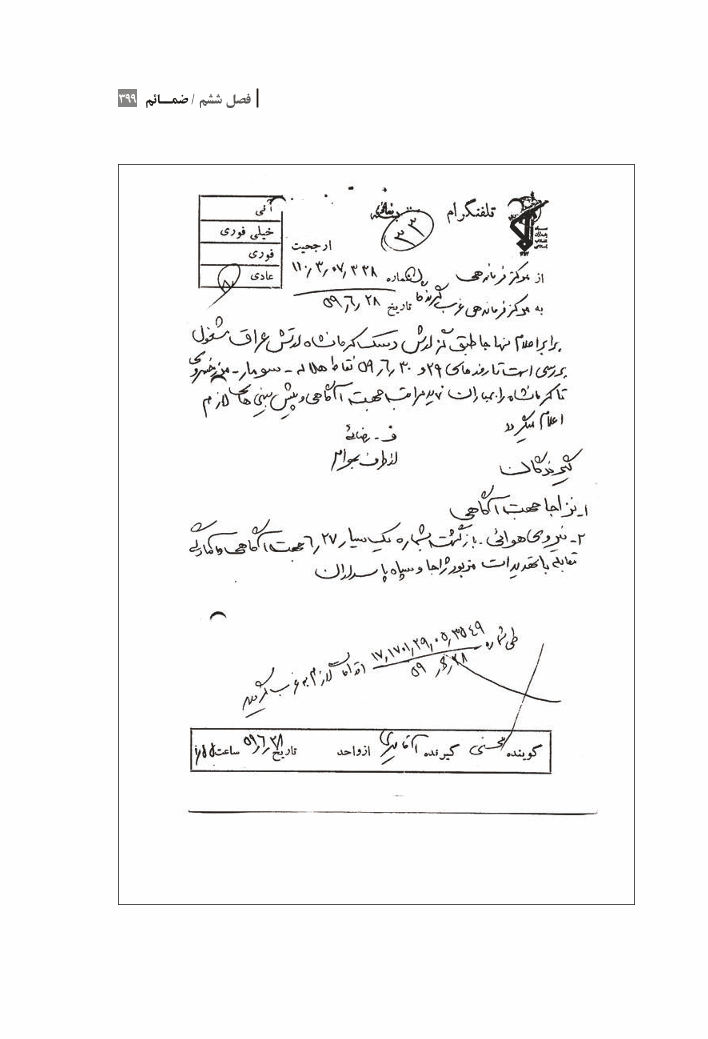 فصل ششم / ضمـــائم ۳۹۹
تلفنگرام
۳۳
ارجحیت
آنی
خیلی فوری
فوری
عادی
از مرکز فرماندهی شماره ۱۱۰٫۳٫۰۷٫۳۳۸
به مرکز فرماندهی غرب تاریخ ۵۹٫۶٫۲۸
برابر اعلام نهاجا طبق گزارش دسک کرمانشاه ارتش عراق مشغول
بررسی است تا روزهای ۲۹ و ۳۰ ر۶ر۵۹ نقاط هلاله - سومار -
تا کرمانشاه را بمباران نماید مراتب جهت آگاهی و پیش بینی های لازم
اعلام میگردد
ف - رضائی
از طرف
گیرندگان
۱- نزاجا جهت آگاهی
۲- نیروی هوائی - بازگشت بشماره یک سیار ۲۷ر۶ جهت آگاهی و آمادگی
مقابله با تهدیدات مزبور ژاجا و سپاه پاسداران
طی شماره ۱۷٫۱۷۰۱٫۲۹٫۰۵٫۳۵۴۹
اقدامات لازم به غرب گردید
گوینده محسنی گیرنده از واحد تاریخ ۵۹٫۶٫۲۸ ساعت